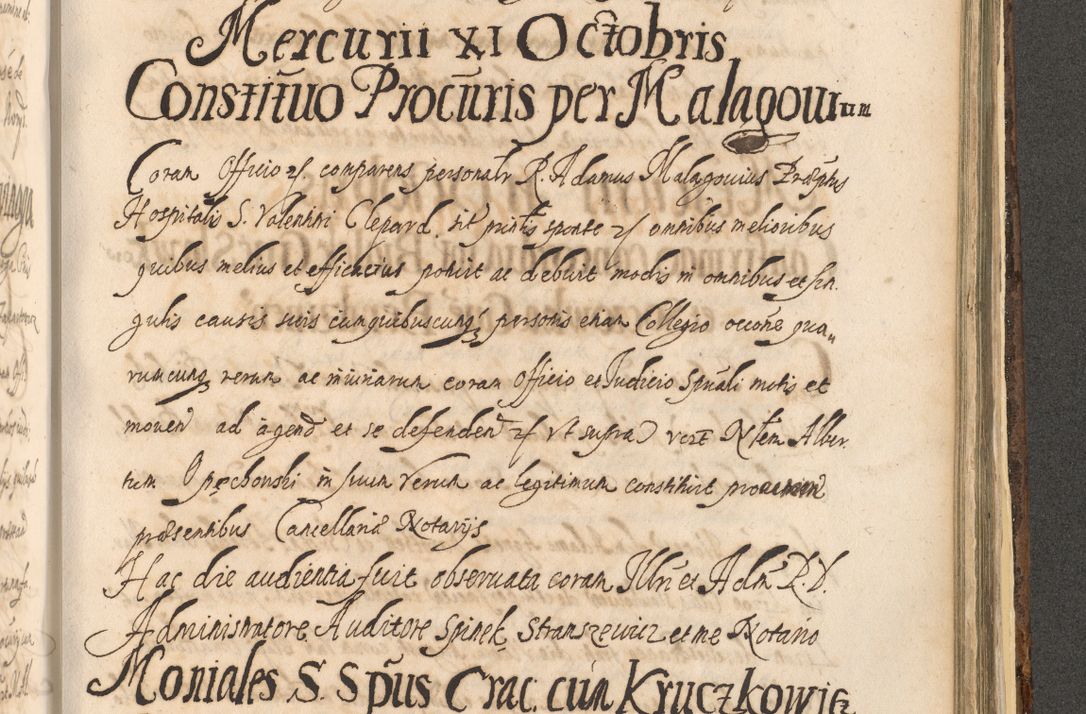 Mercurii XI Octobris
Constituo Procuris per Malagowium
Coram Officio etc. comparens personalr R. Adamus Malagouius Præptus
Hospitalis S. Valentini Clepard. sit printis sponte etc omnibus melioribus
quibus melius et efficacius potuit ac debuit modis in omnibus et sin
gulis causis suis cumquibuscunq personis etiam Collegio occone qua„
rumcunq rerum ac iniuriarum coram Officio et Iudicio Spuali motis et
mouen ad agend et se defenden etc vt supra vert Nlem Alber
tum Opęchonski in suum verum ac legitimum constituit procurem
præsentibus Cancellariæ Notarijs
Hac die audientia fuit obseruata coram Illri et Adm R. D.
Administratore Auditore Spinek Stranszewicz et me Notario
Moniales S. Spus Crac. cum Kruczkowic